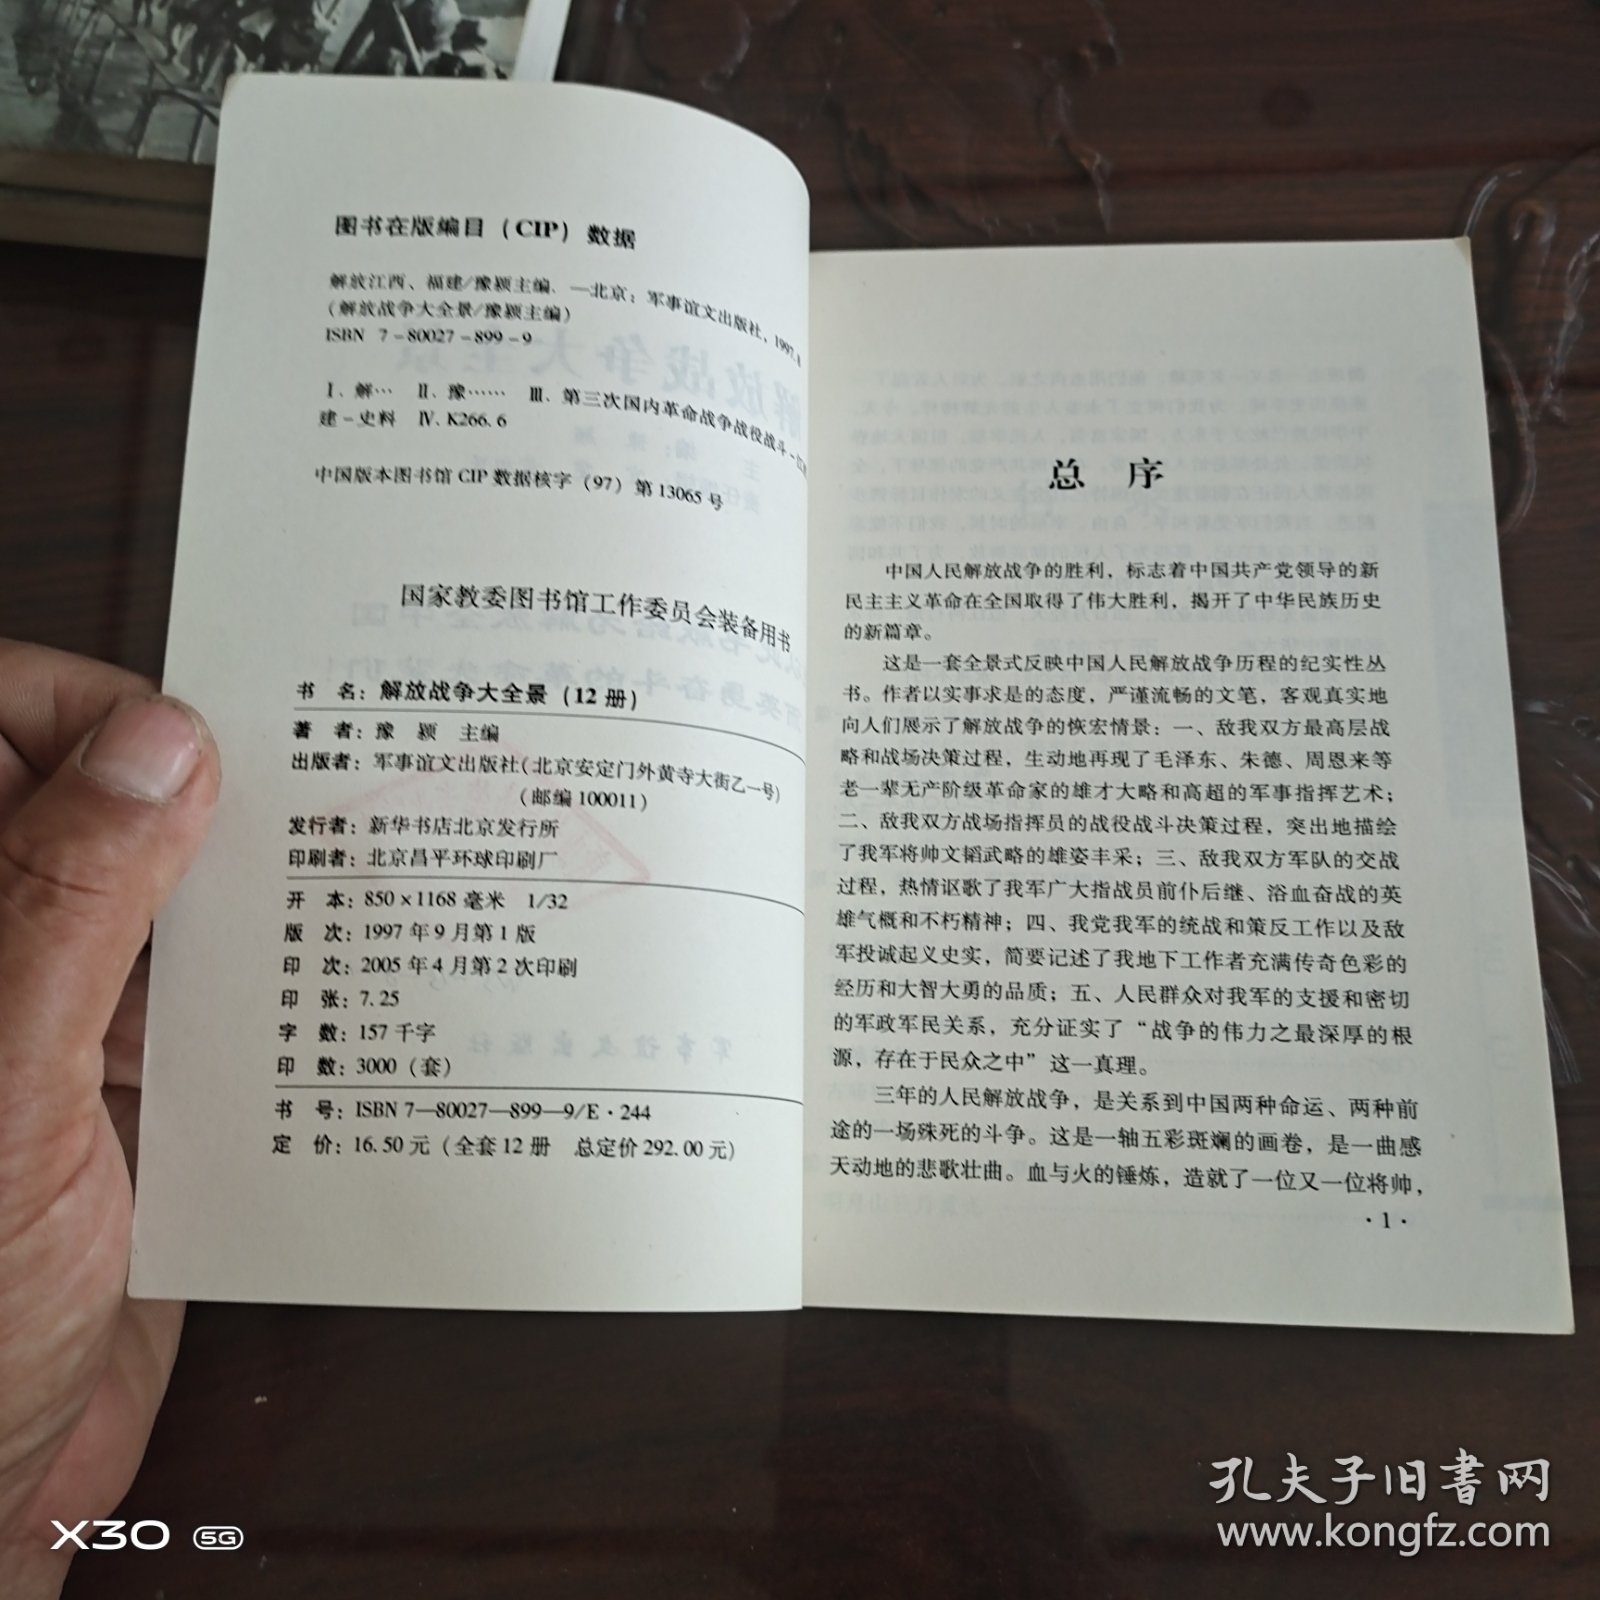 图书在版编目（CIP）数据
解放江西、福建/豫颖主编. —北京：军事谊文出版社，1997.8
（解放战争大全景/豫颖主编）
ISBN 7-80027-899-9
Ⅰ. 解… Ⅱ. 豫…… Ⅲ. 第三次国内革命战争战役战斗-
建-史料 Ⅳ. K266.6
中国版本图书馆CIP数据核字（97）第13065号
国家教委图书馆工作委员会装备用书
书 名：解放战争大全景（12册）
著 者：豫 颖 主编
出版者：军事谊文出版社（北京安定门外黄寺大街乙一号）
（邮编100011）
发行者：新华书店北京发行所
印刷者：北京昌平环球印刷厂
开 本：850×1168毫米 1/32
版 次：1997年9月第1版
印 次：2005年4月第2次印刷
印 张：7.25
字 数：157千字
印 数：3000（套）
书 号：ISBN 7—80027—899—9/E·244
定 价：16.50元（全套12册 总定价292.00元）
总 序
中国人民解放战争的胜利，标志着中国共产党领导的新
民主主义革命在全国取得了伟大胜利，揭开了中华民族历史
的新篇章。
这是一套全景式反映中国人民解放战争历程的纪实性丛
书。作者以实事求是的态度，严谨流畅的文笔，客观真实地
向人们展示了解放战争的恢宏情景：一、敌我双方最高层战
略和战场决策过程，生动地再现了毛泽东、朱德、周恩来等
老一辈无产阶级革命家的雄才大略和高超的军事指挥艺术；
二、敌我双方战场指挥员的战役战斗决策过程，突出地描绘
了我军将帅文韬武略的雄姿丰采；三、敌我双方军队的交战
过程，热情讴歌了我军广大指战员前仆后继、浴血奋战的英
雄气概和不朽精神；四、我党我军的统战和策反工作以及敌
军投诚起义史实，简要记述了我地下工作者充满传奇色彩的
经历和大智大勇的品质；五、人民群众对我军的支援和密切
的军政军民关系，充分证实了“战争的伟力之最深厚的根
源，存在于民众之中”这一真理。
三年的人民解放战争，是关系到中国两种命运、两种前
途的一场殊死的斗争。这是一轴五彩斑斓的画卷，是一曲感
天动地的悲歌壮曲。血与火的锤炼，造就了一位又一位将帅，
·1·
孔夫子旧书网
www.kongfz.com
X30 5G